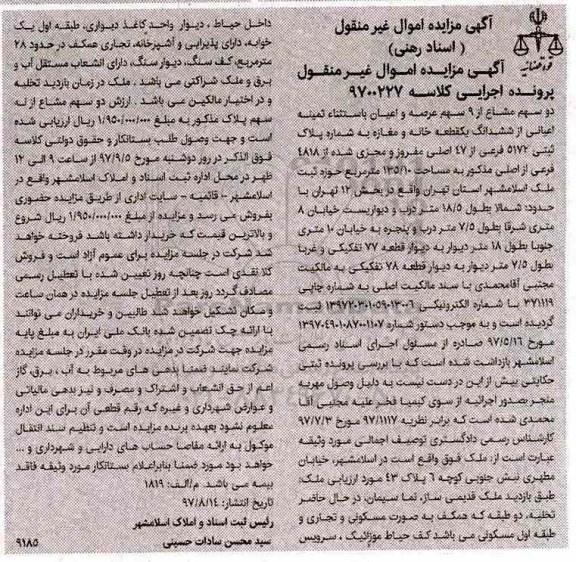 آگهی مزایده اموال غیر منقول
( اسناد رهنی)
آگهی مزایده اموال غیر منقول
پرونده اجرایی کلاسه ۹۷۰۰۲۲۷
دو سهم مشاع از ۹ سهم عرصه و اعیان باستثناء ثمینه
اعیانی از ششدانگ یکقطعه خانه و مغازه به شماره پلاک
ثبتی ۵۱۷۲ فرعی از ۴۷ اصلی مفروز و مجزی شده از ۴۸۱۸
فرعی از اصلی مذکور به مساحت ۱۳۵/۱۰ مترمربع حوزه ثبت
ملک اسلامشهر استان تهران واقع در بخش ۱۲ تهران با
حدود: شمالا بطول ۱۸/۵ متر درب و دیواریست خیابان ۸
متری شرقا بطول ۷/۵ متر درب و پنجره به خیابان ۱۰ متری
جنوبا بطول ۱۸ متر دیوار به دیوار قطعه ۷۷ تفکیکی و غربا
بطول ۷/۵ متر دیوار به دیوار قطعه ۷۸ تفکیکی به مالکیت
مجتبی آقامحمدی با سند مالکیت اصلی به شماره چاپی
۳۷۱۱۱۹ با شماره الکترونیکی ۱۳۹۷۲۰۳۰۱۰۵۹۰۱۳۰۰۶ ثبت
گردیده است و به موجب دستور شماره ۱۳۹۷۰۴۹۰۱۰۸۷۰۰۱۱۰۷
مورخ ۹۷/۵/۱۶ صادره از مسئول اجرای اسناد رسمی
اسلامشهر بازداشت شده است که با بررسی پرونده ثبتی
حکایتی بیش از این در دست نیست به دلیل وصول مهریه
منجر بصدور اجرائیه از سوی کیمیا فخر علیه مجتبی آقا
محمدی شده است که برابر نظریه ۹۷/۱۱۱۷ مورخ ۹۷/۷/۳
کارشناس رسمی دادگستری توصیف اجمالی مورد وثیقه
عبارت است از: ملک فوق واقع است در اسلامشهر، خیابان
مطهری نبش جنوبی کوچه ۶ پلاک ۴۳ مورد ارزیابی ملک:
طبق بازدید ملک قدیمی ساز، نما سیمان، در حال حاضر
تخلیه، دو طبقه که همکف به صورت مسکونی و تجاری و
طبقه اول مسکونی می باشد کف حیاط موزائیک ، سرویس
داخل حیاط ، دیوار واحد کاغذ دیواری، طبقه اول یک
خوابه، دارای پذیرایی و آشپزخانه، تجاری همکف در حدود ۲۸
مترمربع، کف سنگ، دیوار سنگ، دارای انشعاب مستقل آب و
برق و ملک شراکتی می باشد . ملک در زمان بازدید تخلیه
و در اختیار مالکین می باشد . ارزش دو سهم مشاع از نه
سهم پلاک مذکور به مبلغ ۱/۹۵۰/۰۰۰/۰۰۰ ریال ارزیابی شده
است و جهت وصول طلب بستانکار و حقوق دولتی کلاسه
فوق الذکر در روز دوشنبه مورخ ۹۷/۹/۵ از ساعت ۹ الی ۱۲
ظهر در محل اداره ثبت اسناد و املاک اسلامشهر واقع در
اسلامشهر – قائمیه – سایت اداری از طریق مزایده حضوری
بفروش می رسد و مزایده از مبلغ ۱/۹۵۰/۰۰۰/۰۰۰ ریال شروع
و بالاترین قیمت که خریدار داشته باشد فروخته خواهد
شد شرکت در جلسه مزایده برای عموم آزاد است و فروش
کلا نقدی است چنانچه روز تعیین شده با تعطیل رسمی
مصادف گردد روز بعد از تعطیل جلسه مزایده در همان ساعت
و مکان تشکیل خواهد شد طالبین و خریداران می توانند
با ارائه چک تضمین شده بانک ملی ایران به مبلغ پایه
مزایده جهت شرکت در مزایده در وقت مقرر در جلسه مزایده
شرکت نمایند ضمنا بدهی های مربوط به آب ، برق، گاز
اعم از حق انشعاب و اشتراک و مصرف و نیز بدهی مالیاتی
و عوارض شهرداری و غیره که رقم قطعی آن برای این اداره
معلوم نشود بعهده برنده مزایده است و تنظیم سند انتقال
موکول به ارائه مفاصا حساب های دارایی و شهرداری و ...
خواهد بود مورد ضمنا بنابراعلام بستانکار مورد وثیقه فاقد
بیمه می باشد. م/الف: ۱۸۱۹
تاریخ انتشار: ۹۷/۸/۱۴
رئیس ثبت اسناد و املاک اسلامشهر
سید محسن سادات حسینی
۹۱۸۵